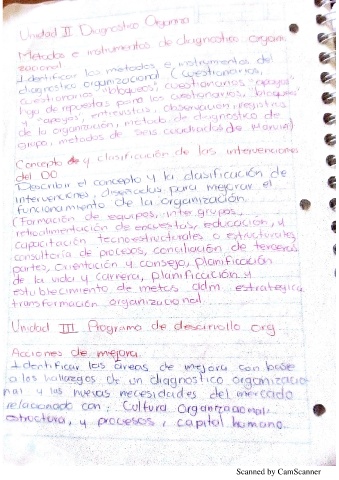 Unidad II Diagnostico Organiza
Metodos e instrumentos de diagnostico organi
zacional
Identificar los metodos e instrumentos del
diagnostico organizacional (cuestionarios,
cuestionarios "bloques", cuestionarios "apoyos"
hoja de repuestas para los cuestionarios, "bloques"
y "apoyos", entrevistas, observación, registros
de la organización, método de diagnostico de
grupo, metodos de seis cuadrados de Marvin)
Concepto de y clasificación de las intervenciones
del DO
Describir el concepto y la clasificación de
intervenciones, diseñadas para mejorar el
funcionamiento de la organización
(Formación de equipos, inter grupos,
retroalimentación de encuestas, educación, y
capacitación tecnoestructurales o estructurales,
consultoría de procesos, conciliación de terceras
partes, Orientación y consejo, planificación
de la vida y carrera, planificación y
establecimiento de metas adm. estrategica
transformación organizacional.
Unidad III Programa de desarrollo org
Acciones de mejora.
Identificar las áreas de mejora con base
a los hallazgos de un diagnostico organizacio
nal y las nuevas necesidades del mercado
relacionado con: Cultura Organizacional,
estructura, y procesos, capital humano.
Scanned by CamScanner